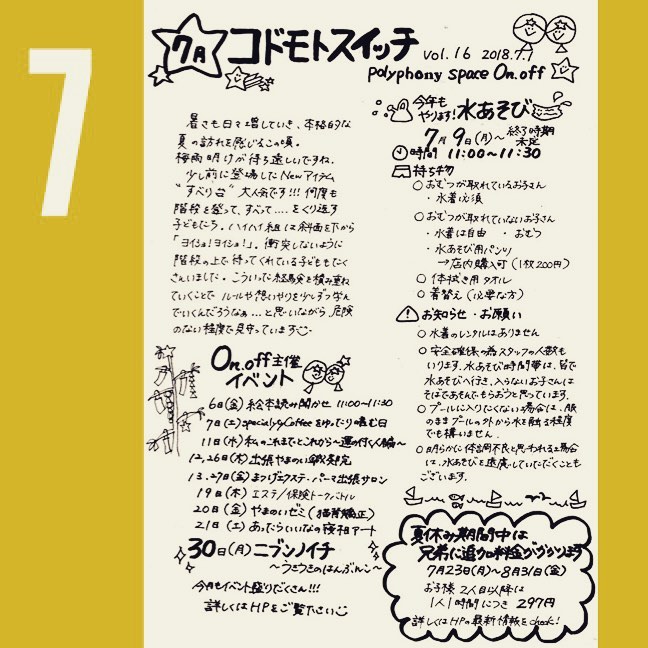 7
7月 コドモトスイッチ vol.16 2018.7.1
polyphony space On.off
暑さも日々増していき、本格的な
夏の訪れを感じるこの頃。
梅雨明けが待ち遠しいですね。
少し前に登場したNewアイテム
"すべり台" 大人気です!!! 何度も
階段を登って、すべって....をくり返す
子どもたち。ハイハイ組は斜面を下から
「ヨイショ!ヨイショ!」。衝突しないように
階段の上で待ってくれている子どももたく
さんいました。こういった経験を積み重ね
ていくことで ルールや想いやりを少しずつ学ん
でいくんだろうなぁ...と思いながら、危険
のない程度で見守っています
On.off主催
イベント
6日(金) 絵本読み聞かせ 11:00〜11:30
7日(土) specialtyCoffeeをゆったり嗜む日
11日(水) 私のこれまでとこれから〜運の付く編〜
12,26日(木) 出張やまのい鍼灸院
13.27日(金) まつげエクステ・パーマ出張サロン
19日(木) エステ/保険トークバトル
20日(金) やまのいゼミ(猫背矯正)
21日(土) あったらいいなの夜和アート
30日(月) ニブンノイチ
〜うさうさのはんぶんこ〜
今月もイベント盛りだくさん!!!
詳しくはHPをご覧下さい
今年も
やります! 水あそび
7月9日(月)〜 終了時期
未定
時間 11:00〜11:30
持ち物
○ おむつが取れているお子さん
・水着必須
○ おむつが取れていないお子さん
・水着は自由 ・おむつ
・水あそび用パンツ
→店内購入可(1枚200円)
○ 体拭き用タオル
○ 着替え(必要な方)
お知らせ・お願い
○ 水着のレンタルはありません
○ 安全確保の為スタッフの人数も
いります。水あそび時間帯は、皆で
水あそびへ行き、入らないお子さんは
そばであそんでもらおうと思っています。
○ プールに入りたくない場合は、服
のままプールの外から水を触る程度
でも構いません。
○ 明らかに体調不良と思われる場合
は、水あそびを遠慮していただくことも
ございます。
夏休み期間中は
兄弟に追加料金がかかります
7月23日(月)〜8月31日(金)
お子様 2人目以降は
1人1時間につき 297円
詳しくはHPの最新情報をcheck!